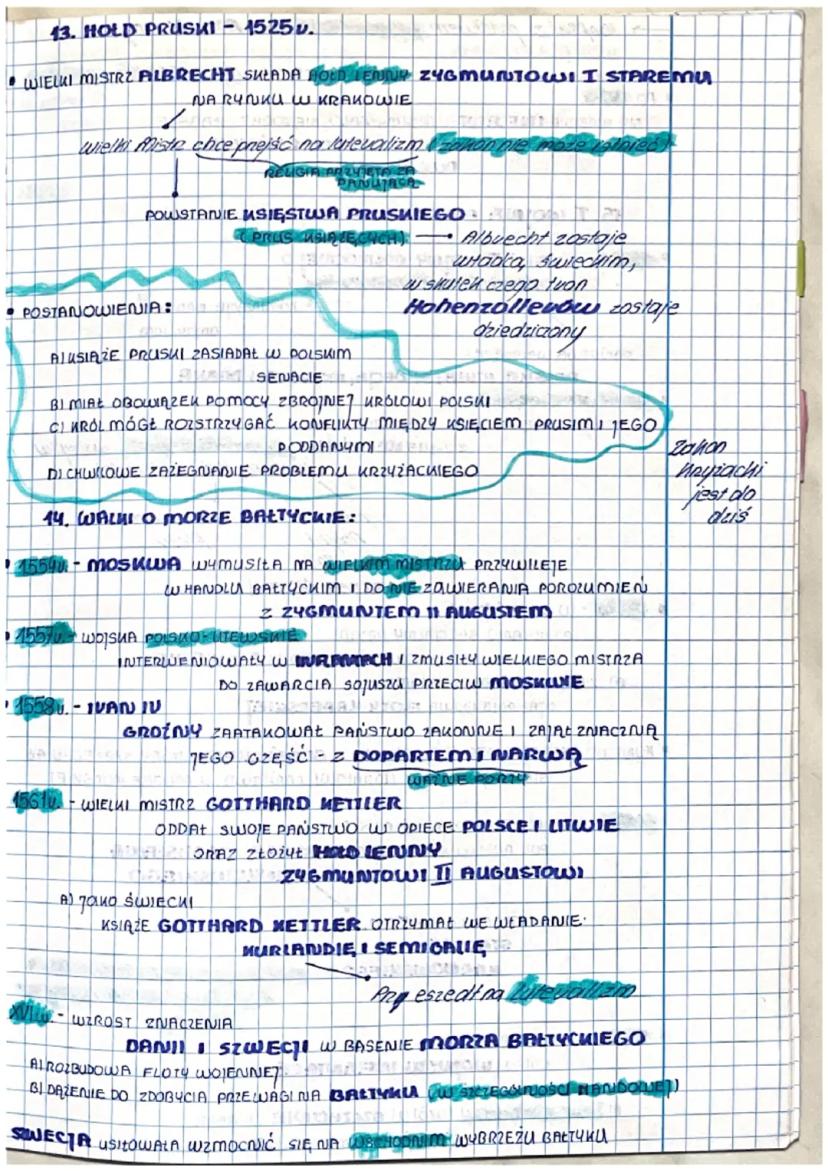 13. HOŁD PRUSKI - 1525r.
• WIELKI MISTRZ ALBRECHT SKŁADA HOŁD LENNY ZYGMUNTOWI I STAREMU
NA RYNKU W KRAKOWIE
Wielki Mistrz chce przejść na luteralizm (zakon nie może istnieć)
RELIGIA PRZYJĘTA ZA
PANUJĄCĄ
POWSTANIE KSIĘSTWA PRUSKIEGO
(PRUS KSIĄŻĘCYCH) → Albrecht zostaje
władcą, świeckim,
w skutek czego tron
Hohenzollerów zostaje
dziedziczony
• POSTANOWIENIA:
A) KSIĄŻE PRUSKI ZASIADAŁ W POLSKIM
SENACIE
B) MIAŁ OBOWIĄZEK POMOCY ZBROJNEJ KRÓLOWI POLSKI
C) KRÓL MÓGŁ ROZSTRZYGAĆ KONFLIKTY MIĘDZY KSIĘCIEM PRUSIM I JEGO
PODDANYMI
D) CHWILOWE ZAŻEGNANIE PROBLEMU KRZYŻACKIEGO
Zakon
Kryżacki
jest do
dziś
14. WALKI O MORZE BAŁTYCKIE:
• 1554r. - MOSKWA WYMUSIŁA NA WIELKIM MISTRZU PRZYWILEJE
W HANDLU BAŁTYCKIM I DO NIE ZAWIERANIA POROZUMIEŃ
Z ZYGMUNTEM II AUGUSTEM
• 1557r. - WOJSKA POLSKO-LITEWSKIE
INTERWENIOWAŁY W INFLANTACH I ZMUSIŁY WIELKIEGO MISTRZA
DO ZAWARCIA SOJUSZU PRZECIW MOSKWIE
• 1558r. - IVAN IV
GROŹNY ZAATAKOWAŁ PAŃSTWO ZAKONNE I ZAJĄŁ ZNACZNĄ
JEGO CZĘŚĆ - Z DOPARTEM I NARWĄ
WAŻNE PORTY
1561r. - WIELKI MISTRZ GOTTHARD KETTLER
ODDAŁ SWOJE PAŃSTWO W OPIECE POLSCE I LITWIE
ORAZ ZŁOŻYŁ HOŁD LENNY
ZYGMUNTOWI II AUGUSTOWI
A) JAKO ŚWIECKI
KSIĄŻE GOTTHARD KETTLER OTRZYMAŁ WE WŁADANIE:
KURLANDIĘ I SEMIGALIĘ
Przeszedł na luteralizm
XVI w. - WZROST ZNACZENIA
DANII I SZWECJI W BASENIE MORZA BAŁTYCKIEGO
A) ROZBUDOWA FLOTY WOJENNEJ
B) DĄŻENIE DO ZDOBYCIA PRZEWAGI NA BAŁTYKU (W SZCZEGÓLNOŚCI HANDLOWEJ)
SZWECJA USIŁOWAŁA WZMOCNIĆ SIĘ NA WSCHODNIM WYBRZEŻU BAŁTYKU